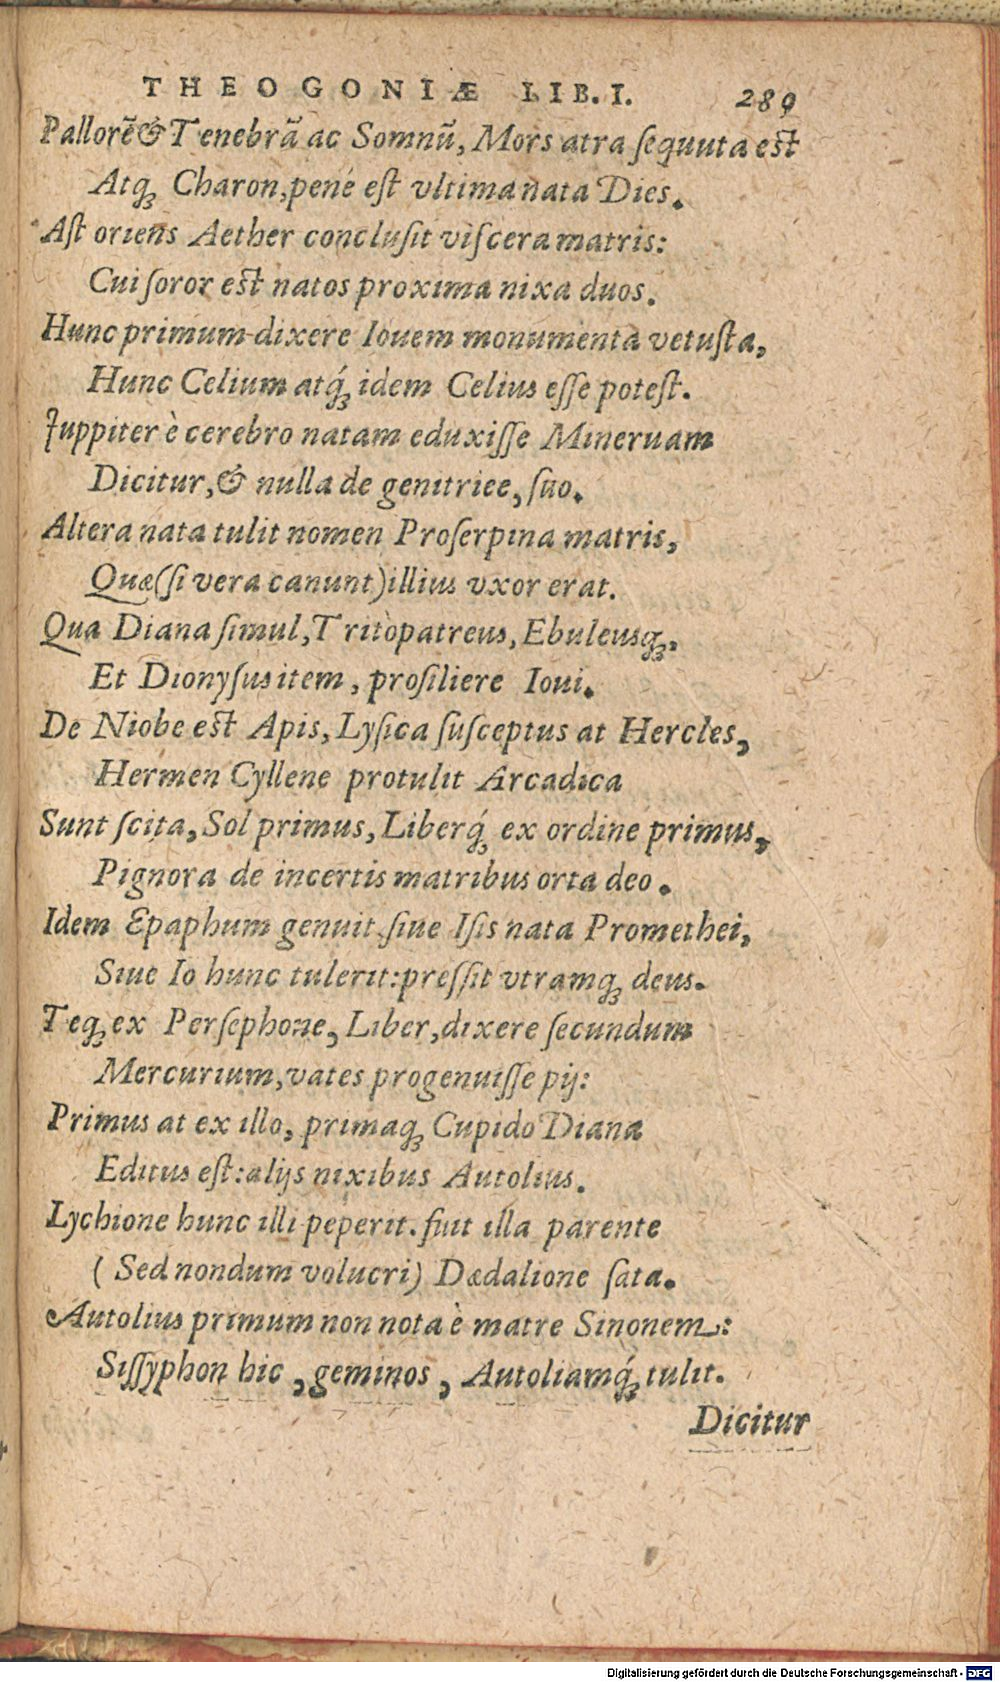 THEOGONIÆ LIB. I. 289
Pallorē & Tenebrā ac Somnū, Mors atra sequuta est
Atq; Charon, pené est vltima nata Dies.
Ast oriens Aether conclusit viscera matris:
Cui soror est natos proxima nixa duos.
Hunc primum dixere Iouem monumenta vetusta,
Hunc Celium atq́; idem Celius esse potest.
Juppiter è cerebro natam eduxisse Mineruam
Dicitur, & nulla de genitriee, suo.
Altera nata tulit nomen Proserpina matris,
Quæ (si vera canunt) illius vxor erat.
Qua Diana simul, Tritòpatreus, Ebuleusq;,
Et Dionysus item, prosiliere Ioui.
De Niobe est Apis, Lysica susceptus at Hercles,
Hermen Cyllene protulit Arcadica
Sunt scita, Sol primus, Liberq́; ex ordine primus,
Pignora de incertis matribus orta deo.
Idem Epaphum genuit. siue Isis nata Promethei,
Siue Io hunc tulerit: pressit vtramq; deus.
Teq; ex Persephone, Liber, dixere secundum
Mercurium, vates progenuisse pij:
Primus at ex illo, primaq; Cupido Diana
Editus est: alijs nixibus Autolius.
Lychione hunc illi peperit. fuit illa parente
(Sed nondum volucri) Dædalione sata.
Autolius primum non nota è matre Sinonem:
Sissyphon hic, geminos, Autoliamq́; tulit.
Dicitur
Digitalisierung gefördert durch die Deutsche Forschungsgemeinschaft - DFG